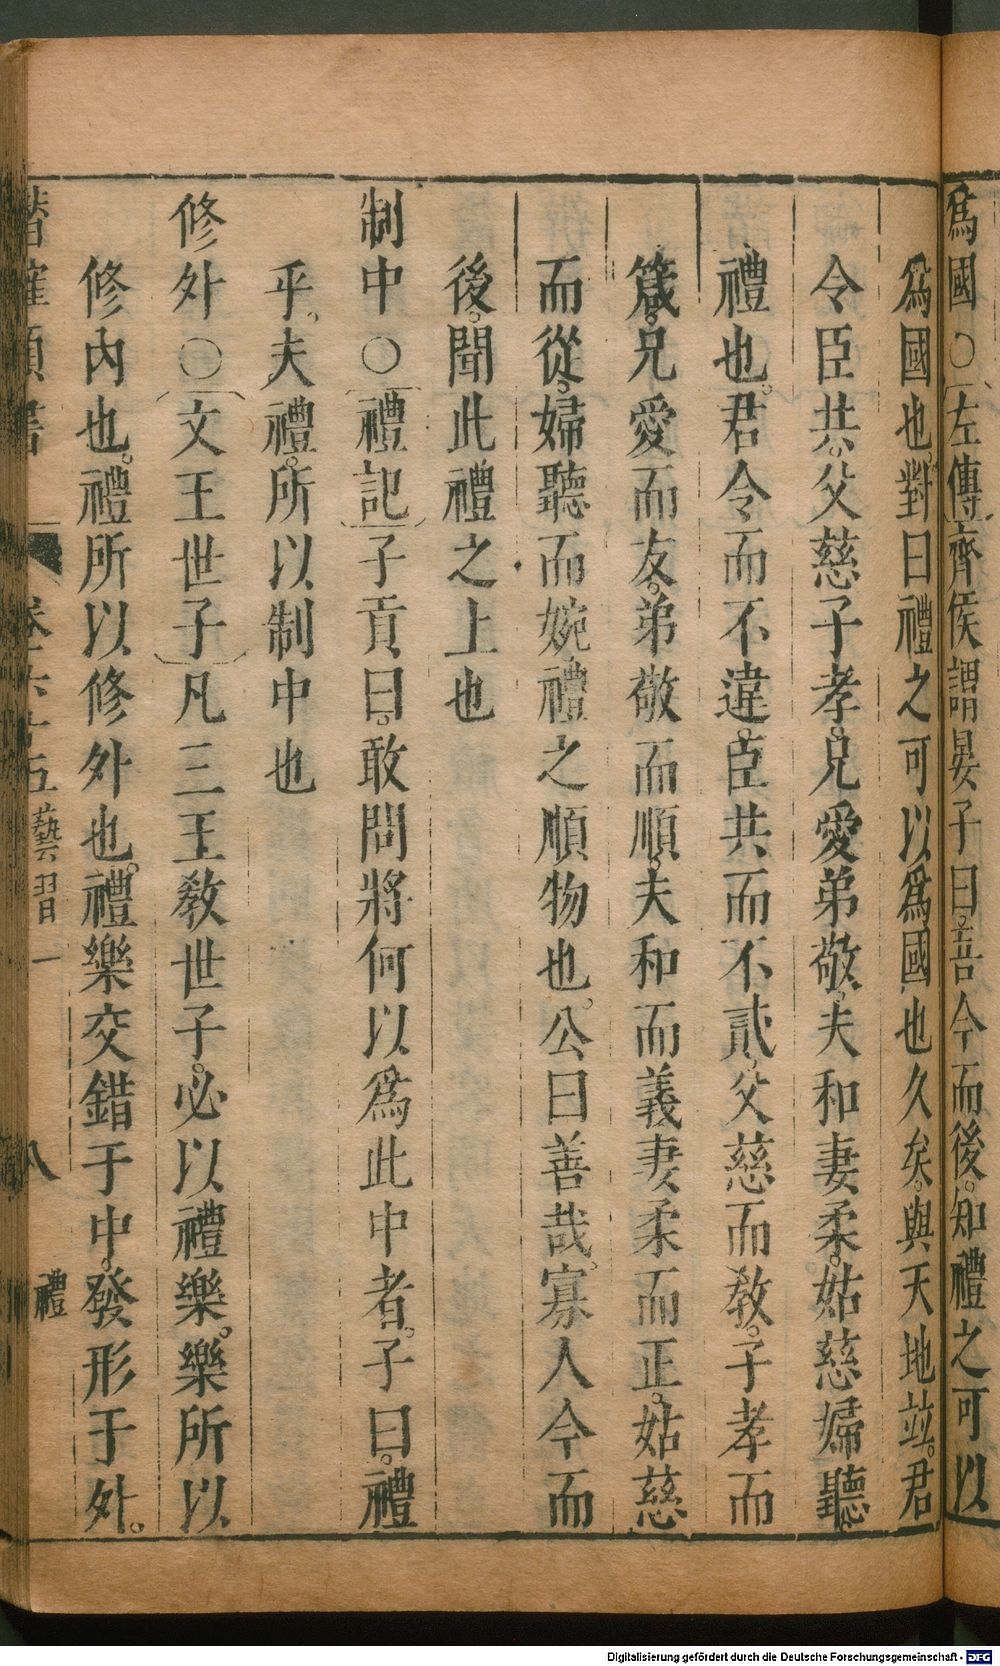 爲國○左傳齊侯謂晏子曰吾今而後知禮之可以
爲國也對曰禮之可以爲國也久矣與天地並君
令臣共父慈子孝兄愛弟敬夫和妻柔姑慈婦聽
禮也君令而不違臣共而不貳父慈而教子孝而
箴兄愛而友弟敬而順夫和而義妻柔而正姑慈
而從婦聽而婉禮之順物也公曰善哉寡人今而
後聞此禮之上也
制中○禮記子貢曰敢問將何以爲此中者子曰禮
乎夫禮所以制中也
修外○文王世子凡三王敎世子必以禮樂樂所以
修內也禮所以修外也禮樂交錯于中發形于外
卷六十五 藝習一 八 禮
Digitalisierung gefördert durch die Deutsche Forschungsgemeinschaft - DFG